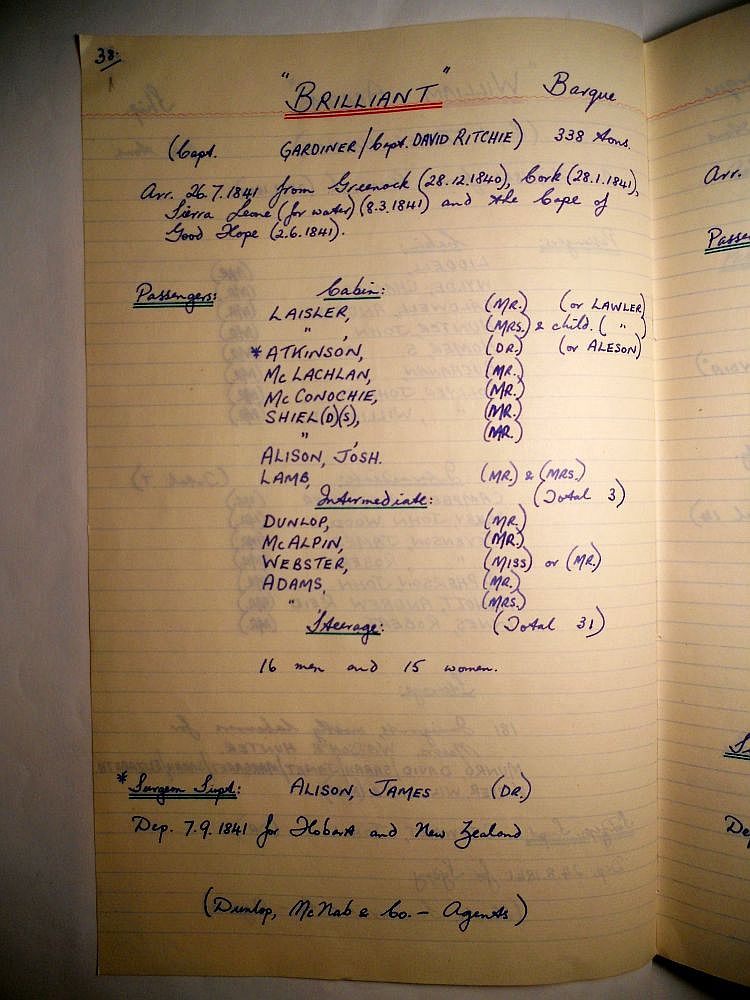 38.
"BRILLIANT" Barque
(Capt. GARDINER/Capt. DAVID RITCHIE) 338 tons.
Arr. 26.7.1841 from Greenock (28.12.1840), Cork (28.1.1841),
Sierra Leone (for water) (8.3.1841) and the Cape of
Good Hope (2.6.1841).
Passengers: Cabin:
LAISLER, (MR.) (or LAWLER)
" , (MRS.) & child. ( " )
*ATKINSON, (DR.) (or ALESON)
McLACHLAN, (MR.)
McCONOCHIE, (MR.)
SHIEL(D)(S), (MR.)
" , (MR.)
ALISON, JOSH.
LAMB, (MR.) & (MRS.)
Intermediate: (Total 3)
DUNLOP, (MR.)
McALPIN, (MR.)
WEBSTER, (MISS) or (MR.)
ADAMS, (MR.)
" , (MRS.)
Steerage: (Total 31)
16 men and 15 women.
*Surgeon Supt: ALISON, JAMES (DR.)
Dep. 7.9.1841 for Hobart and New Zealand
(Dunlop, McNab & Co. - Agents)
Arr.